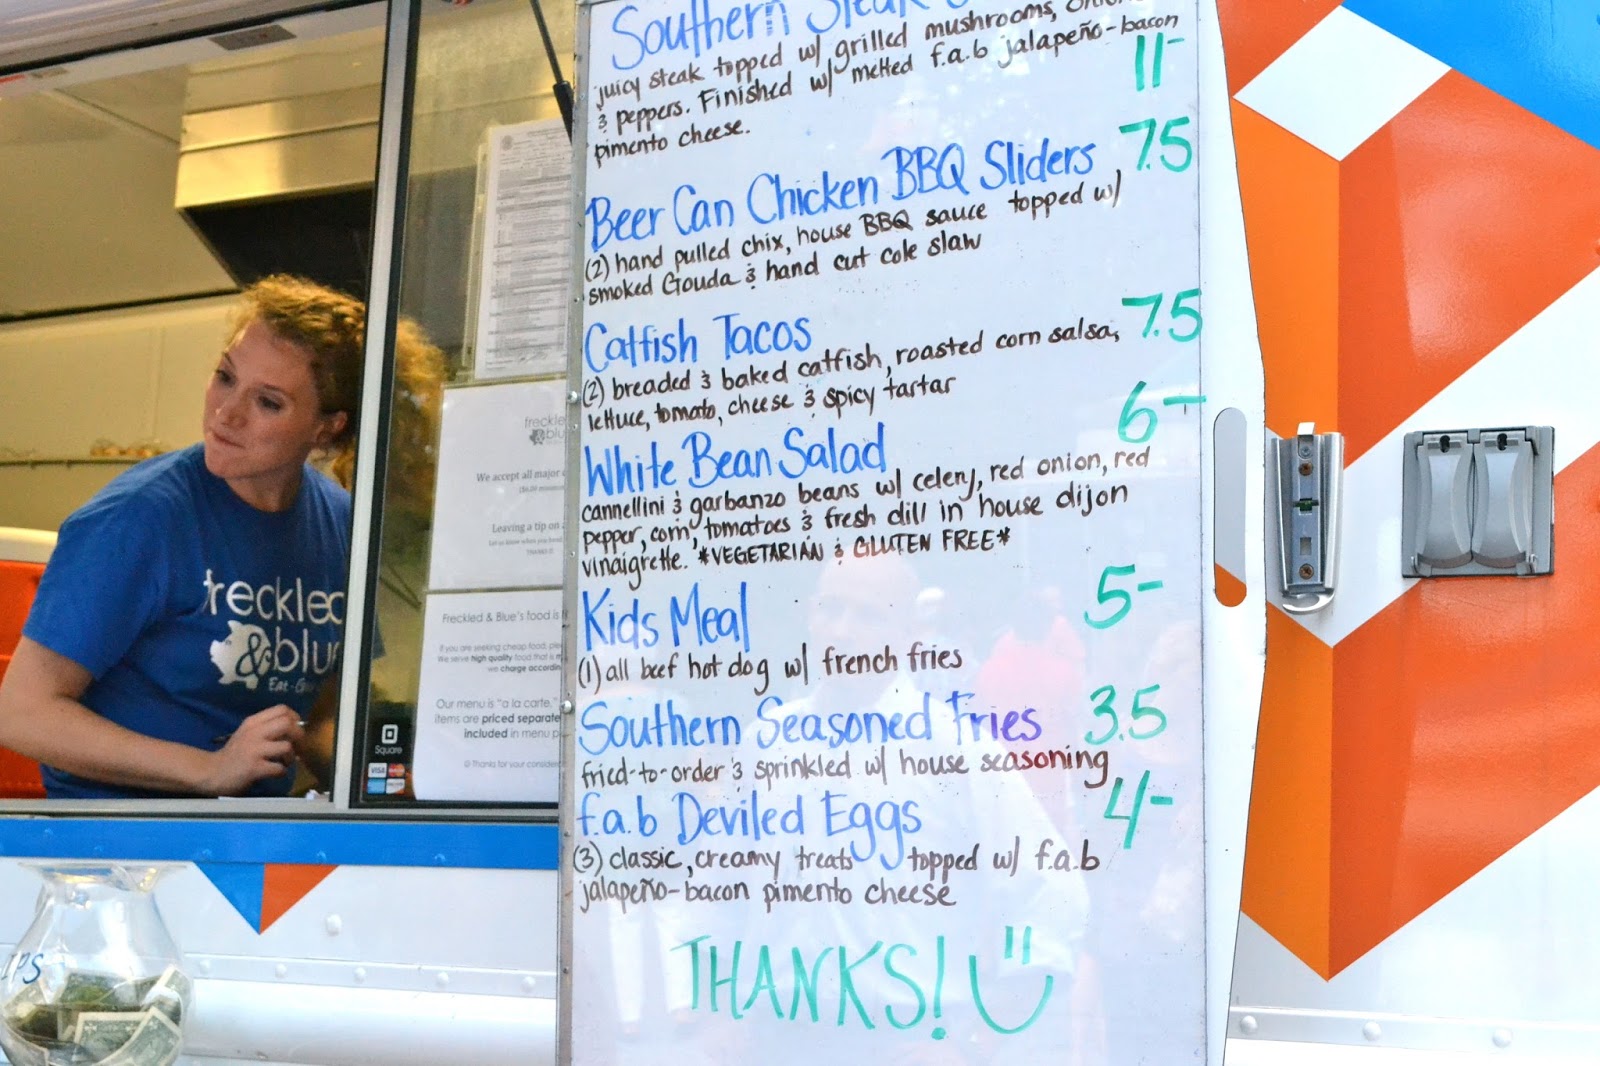 Southern Steak
juicy steak topped w/ grilled mushrooms,
& peppers. Finished w/ melted f.a.b jalapeño-bacon
pimento cheese.
11-
Beer Can Chicken BBQ Sliders 7.5
(2) hand pulled chix, house BBQ sauce topped w/
smoked Gouda & hand cut cole slaw
Catfish Tacos 7.5
(2) breaded & baked catfish, roasted corn salsa,
lettuce, tomato, cheese & spicy tartar
White Bean Salad 6-
cannellini & garbanzo beans w/ celery, red onion, red
pepper, corn, tomatoes & fresh dill in house dijon
vinaigrette. *VEGETARIAN & GLUTEN FREE*
Kids Meal 5-
(1) all beef hot dog w/ french fries
Southern Seasoned Fries 3.5
fried-to-order & sprinkled w/ house seasoning
f.a.b Deviled Eggs 4-
(3) classic, creamy treats topped w/ f.a.b
jalapeño-bacon pimento cheese
THANKS!
freckled
& blue
We accept all major
Leaving a tip on
THANKS!
Freckled & Blue's food is
If you are seeking cheap food,
We serve high quality food that is
we charge
Our menu is "a la carte."
items are priced separate
included in menu
☺ Thanks for your
Square
VISA
freckled
& blue
Eat -